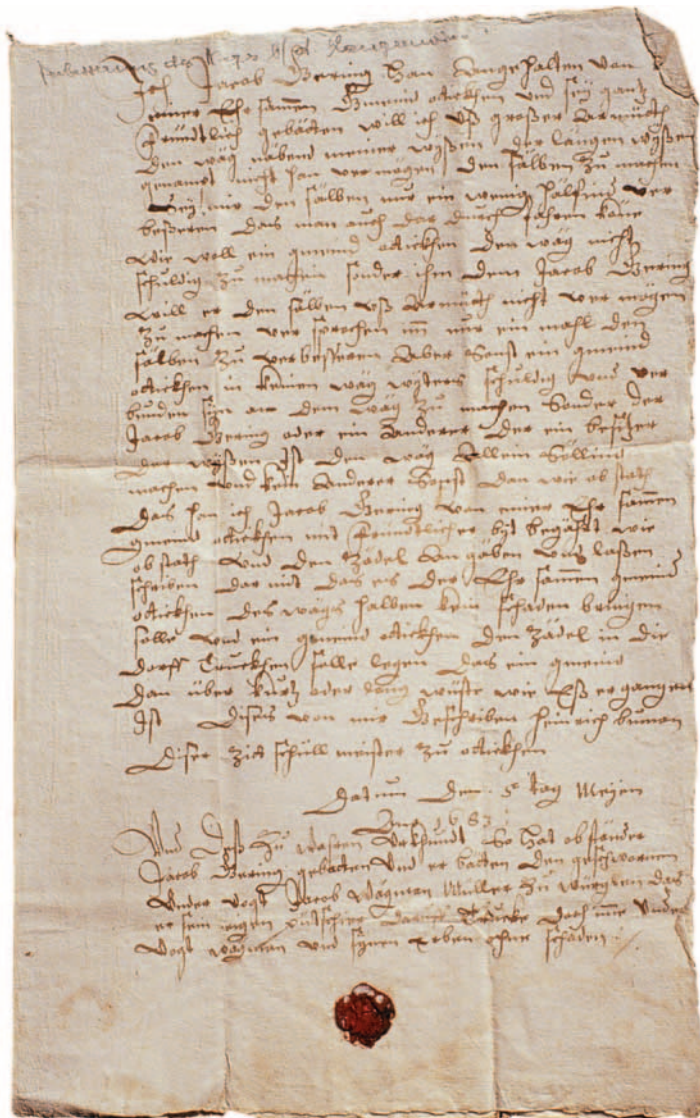 Ich Jacob Gering han angehalten von
einer Ehrsammen Gmeind otickhen und sey gantz
fründtlich gebätten will ich uß großer armuth
den wäg näbend meiner wyßen der längen wyßen
genampt nicht han vermögen den sälben zu machen
Sey mir den sälben nur ein wenig hälfind ver
beßeren das man auch dar durch fahren köne
wie woll ein gmeind otickhen den wäg nicht
schuldig zu machen sonder ihm dem Jacob Gering
will er den sälben uß armuth nicht ver mögen
zu machen ver sprochen im nur ein mahl den
sälben zu verbesseren aber sonst ein gmeind
otickhen in keinen wäg wyters schuldig und ver
bunden syn an dem wäg zu machen sonder der
Jacob Gering oder ein anderer der ein besitzer
der wyßen ist den wäg allein söllind
machen und kein anderer sonst dan wie ob stath
das han ich Jacob Gering von einer Ehr sammen
gmeind otickhen mit fründtlicher byt begärt wie
ob stath und den Zädel an gäben und laßen
schriben dar mit das es der Ehr sammen gmeind
otickhen des wägs halben kein schaden bringen
solle und ein gmeind otickhen den Zädel in die
dorff Truckhen solle legen das ein gmeind
dan über kurtz oder lang wüste wie Eß er gangen
Ist dises von mir Geschriben heinrich buman
diser Zit schull meister zu otickhen
datum den 5 tag Meyen
Ano 1683
Und deß zu waren urkhundt so hat ob stander
Jacob Gering gebatten und er batten den geschwornen
under vogt Jacob wägman Müller zu würglen das
er sein eigen pütschier Trucke doch ime under
vogt wägman und synen erben ohne schaden